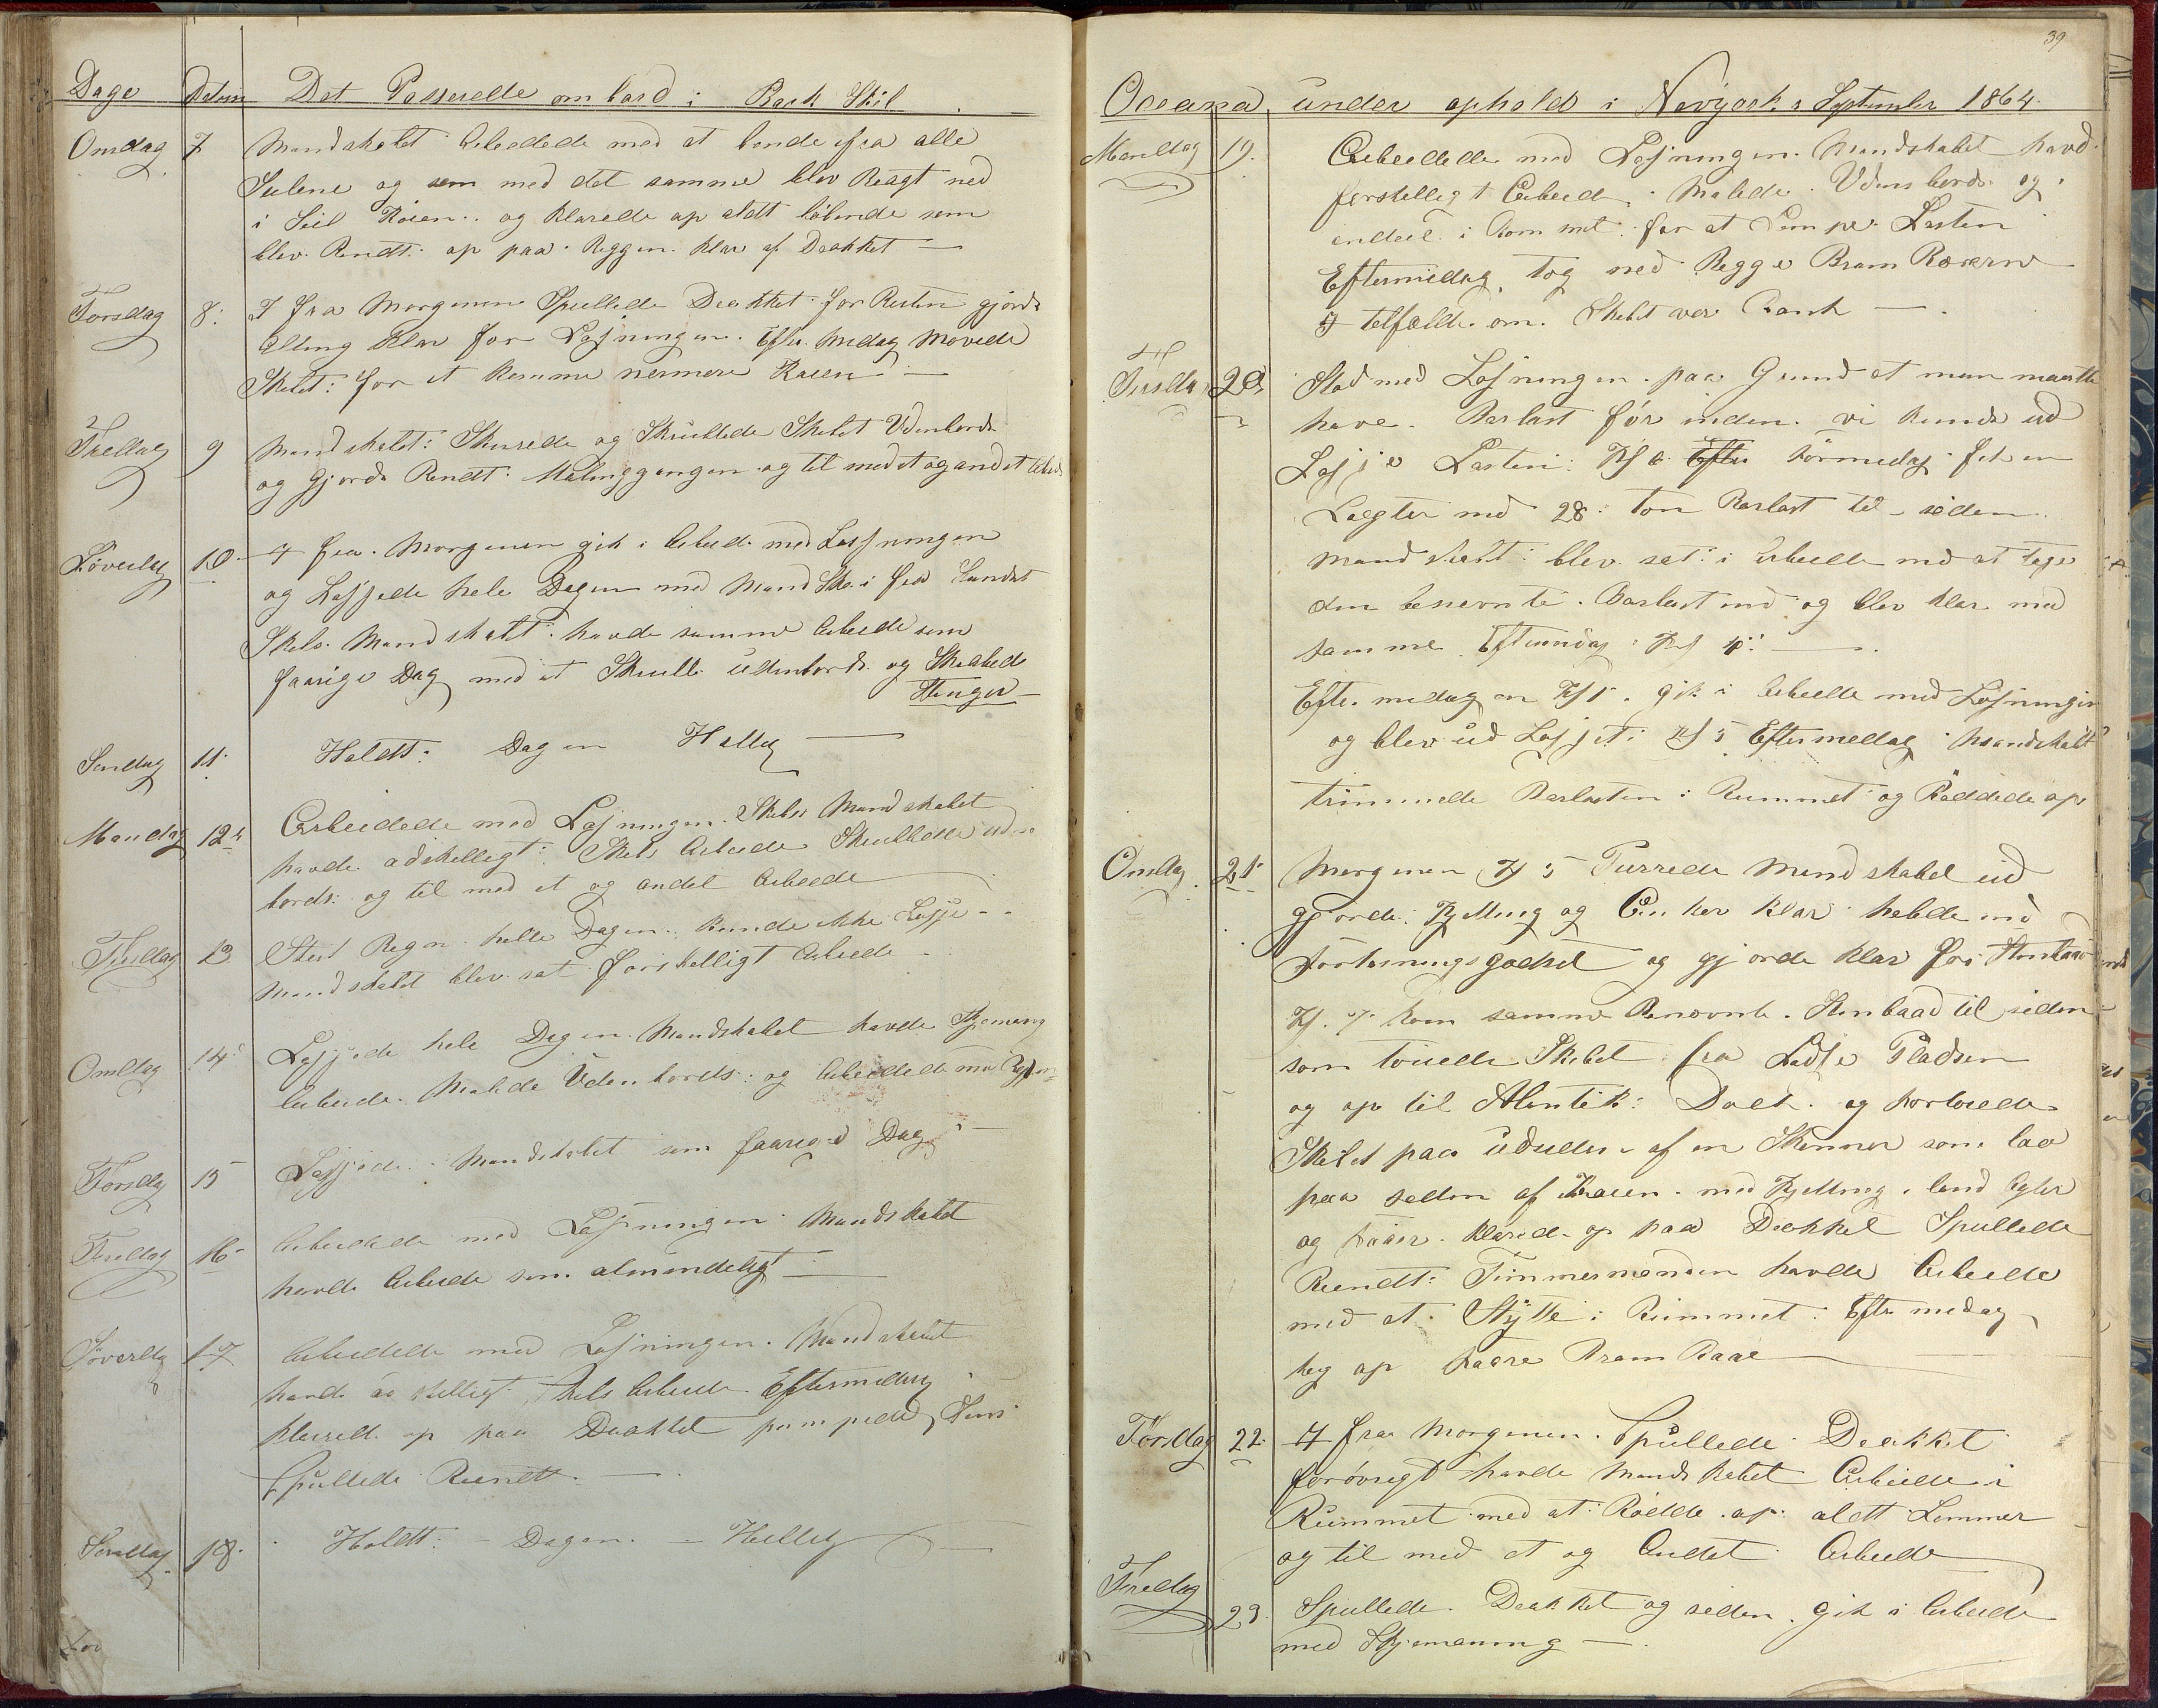 Dage Datum Det Passerede om bord i Bark Skib
Onsdag 7 Mandskabet Arbeidede med at bende ifra alle
Seilene og som med det samme blev Bragt ned
i Seil Köien. og klarede op aldt löbende som
blev Rendt: op paa Reggen. klar af Dækket
Torsdag 8: I fra Morgenen Spullede Dækket for Resten gjorde
Alting klar for Losningen. Efter Midag Movede
Skibet: for at komme nermere Kaien
Fredag 9 Mandskabet: Skurede og Skrubbede Skibet Udenbords
og gjorde Rendt: Malinggangen og til med et og andet
Löverdag 10 I fra Morgenen gik i Arbeide med Losningen
og Lossede hele Dagen med Mand Skab i fra Landet
Skibs Mandskabt: havde samme Arbeide som
faarige Dag med at Skrubbe udenbords og Skrabede
Stenger
Søndag 11 Holdt: Dagen Hellig
Mandag 12 Arbeidede med Losningen. Skibs Mandskabet
havde adskelligt: Skibs Arbeide Skrubbede uden
bords: og til med et og andet Arbeide
Tirsdag 13 Sterk Regn helle Dagen. kunde ikke Losse
Mandskabet blev sat forskelligt Arbeide
Onsdag 14 Lossede hele Dagen Mandskabet havde Skjemang
Arbeide. Malede Udenbords: og Arbeidede
Torsdag 15 Lossede Mandskabet som faarige Dag
Fredag 16 Arbeidede med Losningen Mandskabet
havde Arbeide som almindeligt
Löverdag 17 Arbeidede med Losningen. Mandskabet
havde adskelligt Skibs Arbeide Eftermidag
klarede op paa Dækket pompede Lens
Spullede Rendt.
Søndag 18. Holdt: Dagen. Hellig
39
Oceana, under ophold i Nevyork, September 1864.
Mandag 19. Arbeidede med Losningen. Mandskabet havde
forskelligt Arbeid. Malede Udenbords og
endeel i Rommet for at Lempe Lasten
Eftermidag, tog ned Regge Bram Raaerne
I telfælde om. Skibet var Rank
Tirsdag 20, Stod med Losningen. paa Grund at man maatte
have Barlast før inden. vi kunde ud
Losse Lasten: Kl 6 Efter Formidag fik en
Lægter med 28: Ton Barlast til siden
Mandskabt: blev sat: i Arbeide med at tage
den benevnte. Barlast ind og blev klar med
samme Eftermidag: Kl 4:
Efter midagen Kl 1. gik i Arbeide med Losningen
og blev ud Losset: Kl 5 Eftermedag Mandskabt
trimmede Barlasten i Rummet og Röddede op
Onsdag 21 Morgenen Kl 5 Purrede Mandskabet ud
gjorde: Kjetting og Anker klar hebede ind
Fortøiningsgodset og gjorde klar for Stembaad
Kl. 7 kom samme Benevnte. Stembaad til siden
som touede Skibet fra Losse Pladsen
og op til Atlentik: Dock. og fortøiede
Skibet paa udsiden af en Skonner som laa
paa seden af Kaien. med Kjetting i land Agter
og Foer. klarede op paa Dækket Spullede
Rendt: Timmermanden havde Arbeide
med at Stytte i Rummet: Efter medag
tog op Faare Bram Raae
Torsdag 22. I fra Morgenen. Spullede Dækket
forøvregt havde Mandskabet Arbeide i
Rummet med at Rödde op aldt Lemmer
og til med et og Andet Arbeide
Fredag 23. Spullede Dækket og siden gik i Arbeide
med Skjemanning